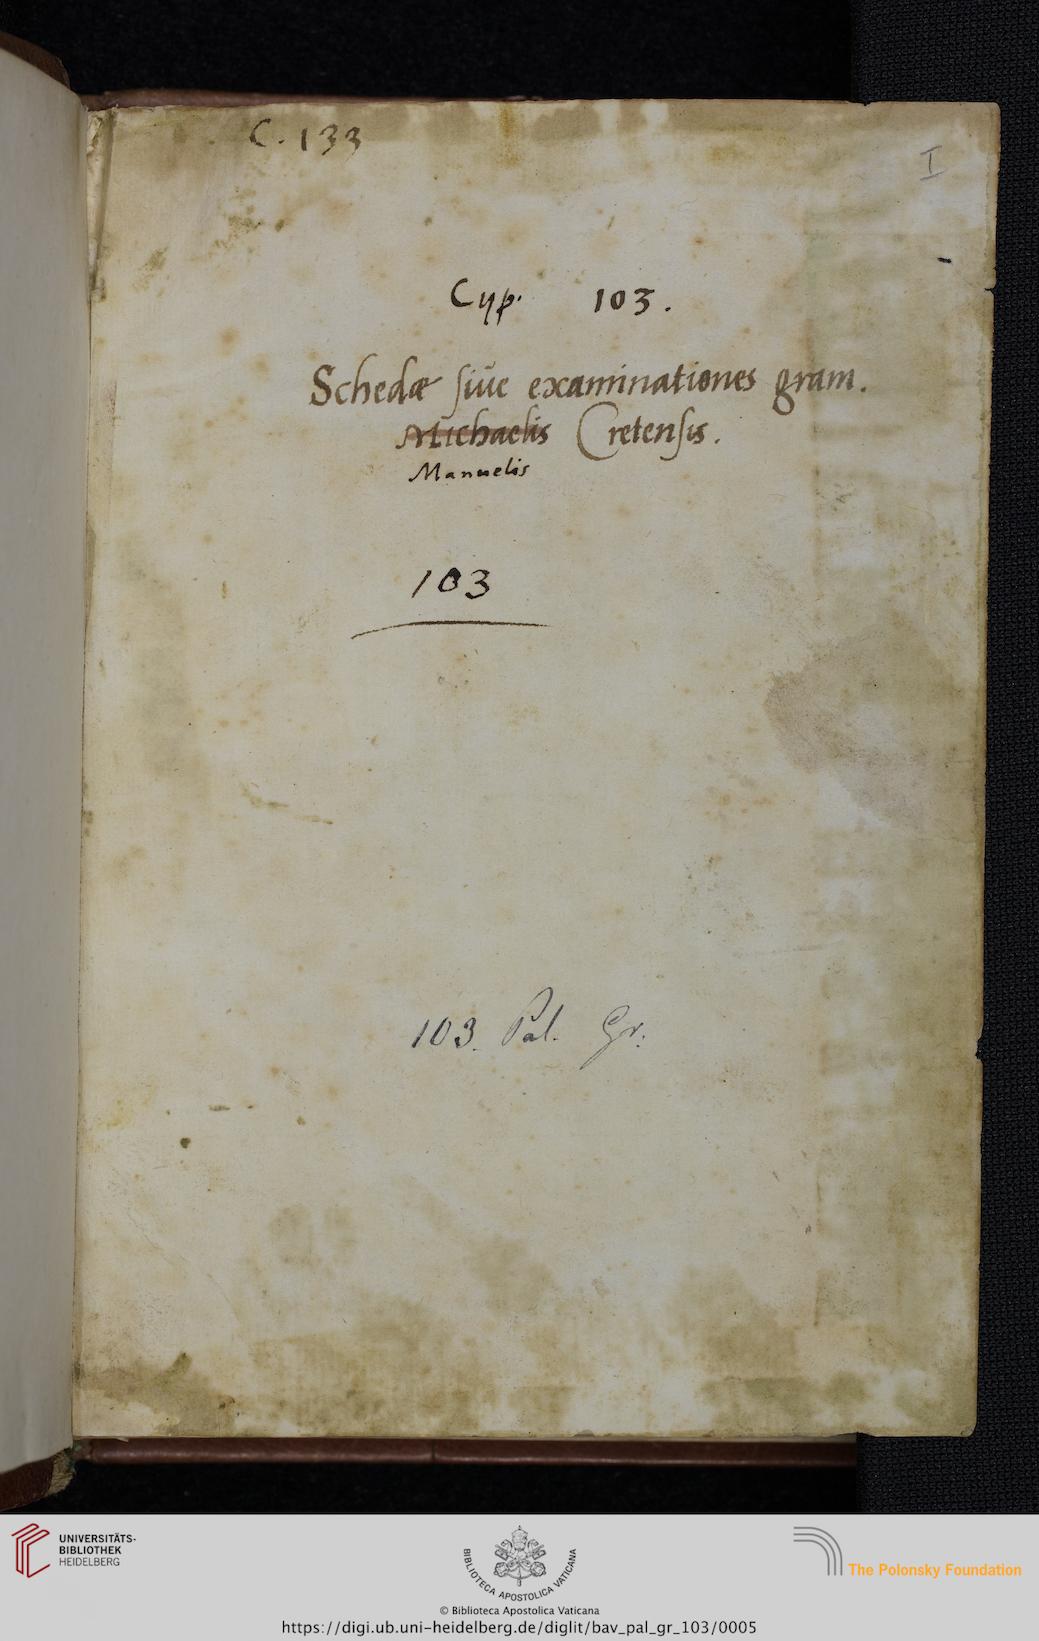 C. 133
I
Cyp. 103.
Schedæ ſiue examinationes gram.
Michaelis Cretenſis.
Manuelis
103
103. Pal. Gr.
UNIVERSITÄTS-
BIBLIOTHEK
HEIDELBERG
BIBLIOTECA APOSTOLICA VATICANA
The Polonsky Foundation
© Biblioteca Apostolica Vaticana
https://digi.ub.uni-heidelberg.de/diglit/bav_pal_gr_103/0005